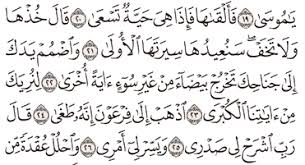 يَٰمُوسَىٰ ١٩ فَأَلْقَىٰهَا فَإِذَا هِىَ حَيَّةٌ تَسْعَىٰ ٢٠ قَالَ خُذْهَا
وَلَا تَخَفْ ۖ سَنُعِيدُهَا سِيرَتَهَا ٱلْأُولَىٰ ٢١ وَٱضْمُمْ يَدَكَ
إِلَىٰ جَنَاحِكَ تَخْرُجْ بَيْضَآءَ مِنْ غَيْرِ سُوٓءٍ ءَايَةً أُخْرَىٰ ٢٢ لِنُرِيَكَ
مِنْ ءَايَٰتِنَا ٱلْكُبْرَى ٢٣ ٱذْهَبْ إِلَىٰ فِرْعَوْنَ إِنَّهُۥ طَغَىٰ ٢٤ قَالَ
رَبِّ ٱشْرَحْ لِى صَدْرِى ٢٥ وَيَسِّرْ لِىٓ أَمْرِى ٢٦ وَٱحْلُلْ عُقْدَةً مِّن